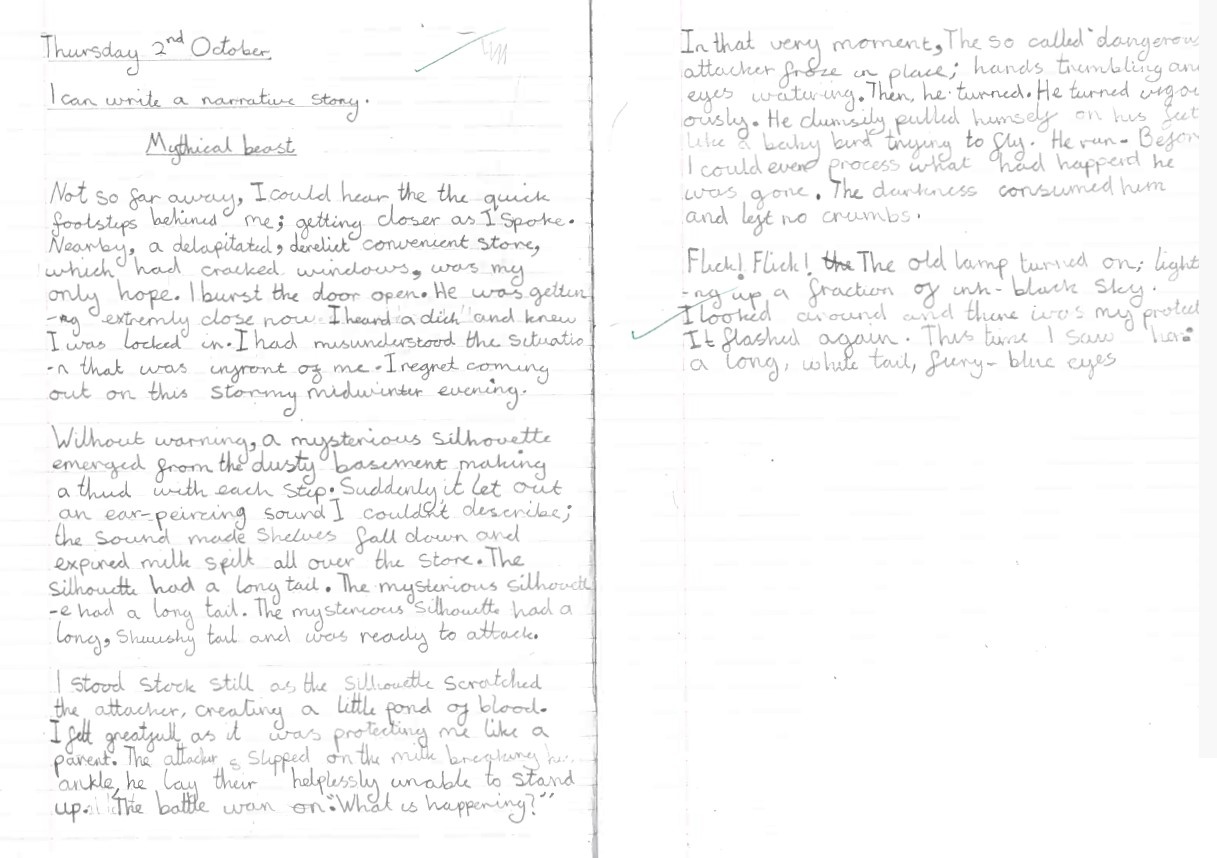 Thursday 2nd October
I can write a narrative story.
Mythical beast
Not so far away, I could hear the the quick
footsteps behined me; getting closer as I spoke.
Nearby, a delapitated, derelict convenient store,
which had cracked windows, was my
only hope. I burst the door open. He was gettin
-ng extremly close now. I heard a click and knew
I was locked in. I had misunderstood the situatio
-n that was infront of me. I regret coming
out on this stormy midwinter evening.
Without warning, a mysterious silhouette
emerged from the dusty basement making
a thud with each step. Suddenly it let out
an ear-peircing sound I couldn't describe;
the sound made shelves fall down and
expired milk spilt all over the store. The
silhouette had a long tail. The mysterious silhouett
-e had a long tail. The mysterious silhouette had a
long, tail and was ready to attack.
I stood stock still as the silhouette scratched
the attacker, creating a little pond of blood.
I felt greatfull as it was protecting me like a
parent. The slipped on the milk breaking
ankle, he lay their helplessly unable to stand
up. The battle wan on. "What is happening?"
In that very moment, The so called "dangerous
attacker froze in place; hands trembling an
eyes watering. Then, he turned. He turned vigo
ously. He clumsily pulled himself on his feet
like a baby bird trying to fly. He ran. Befor
I could even process what had happend he
was gone. The darkness consumed him
and left no crumbs.
Flick! Flick! the The old lamp turned on; light
-ng up a fraction of ink-black sky.
I looked around and there was my protect
It flashed again. This time I saw
a long, white tail, firey-blue eyes